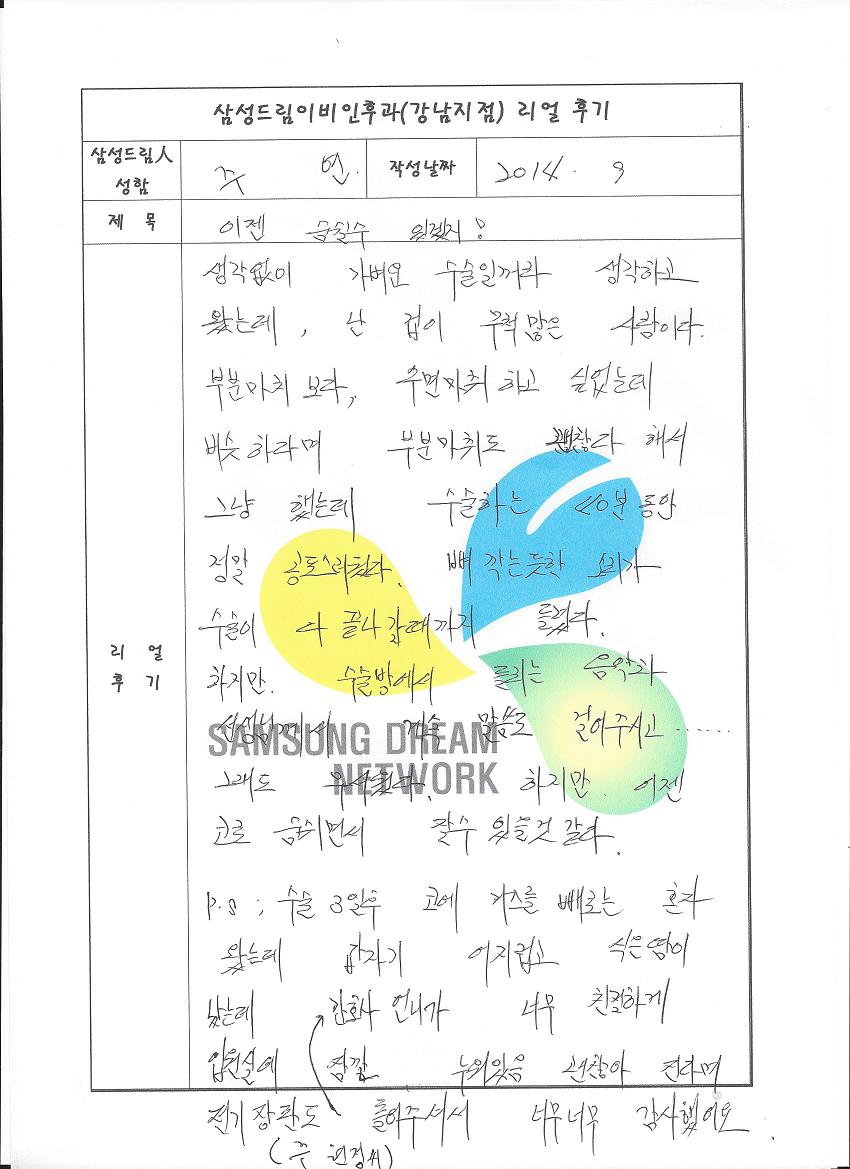 삼성드림이비인후과(강남지점) 리얼 후기
삼성드림人 성함 주 연. 작성날짜 2014. 9
제 목 이젠 숨쉴수 있겠지!
생각없이 가벼운 수술일꺼라 생각하고
왔는데, 난 겁이 무척 많은 사람이다.
부분마취 보다, 수면마취 하고 싶었는데
비슷하라며 부분마취도 괜찮다 해서
그냥 했는데 수술하는 20분 동안
정말 공포스러웠다. 뼈 깍는듯한 소리가
수술이 다 끝나갈때까지 들렸다.
리 얼
후 기
하지만. 수술방에서 들리는 음악과
선생님께서 계속 말씀도 걸어주시고......
SAMSUNG DREAM
NETWORK
그래도 무서웠다. 하지만. 이젠
코로 숨쉬면서 잘수 있을것 같다.
P.S ; 수술 3일후 코에 거즈를 빼로는 혼자
왔는데 갑자기 어지럽고 식은땀이
났는데 간호사 언니가 너무 친절하게
입원실에 잠깐 누워있음 괜찮아 진다며
전기장판도 틀어주셔서 너무너무 감사했어요.
(주 현정씨)